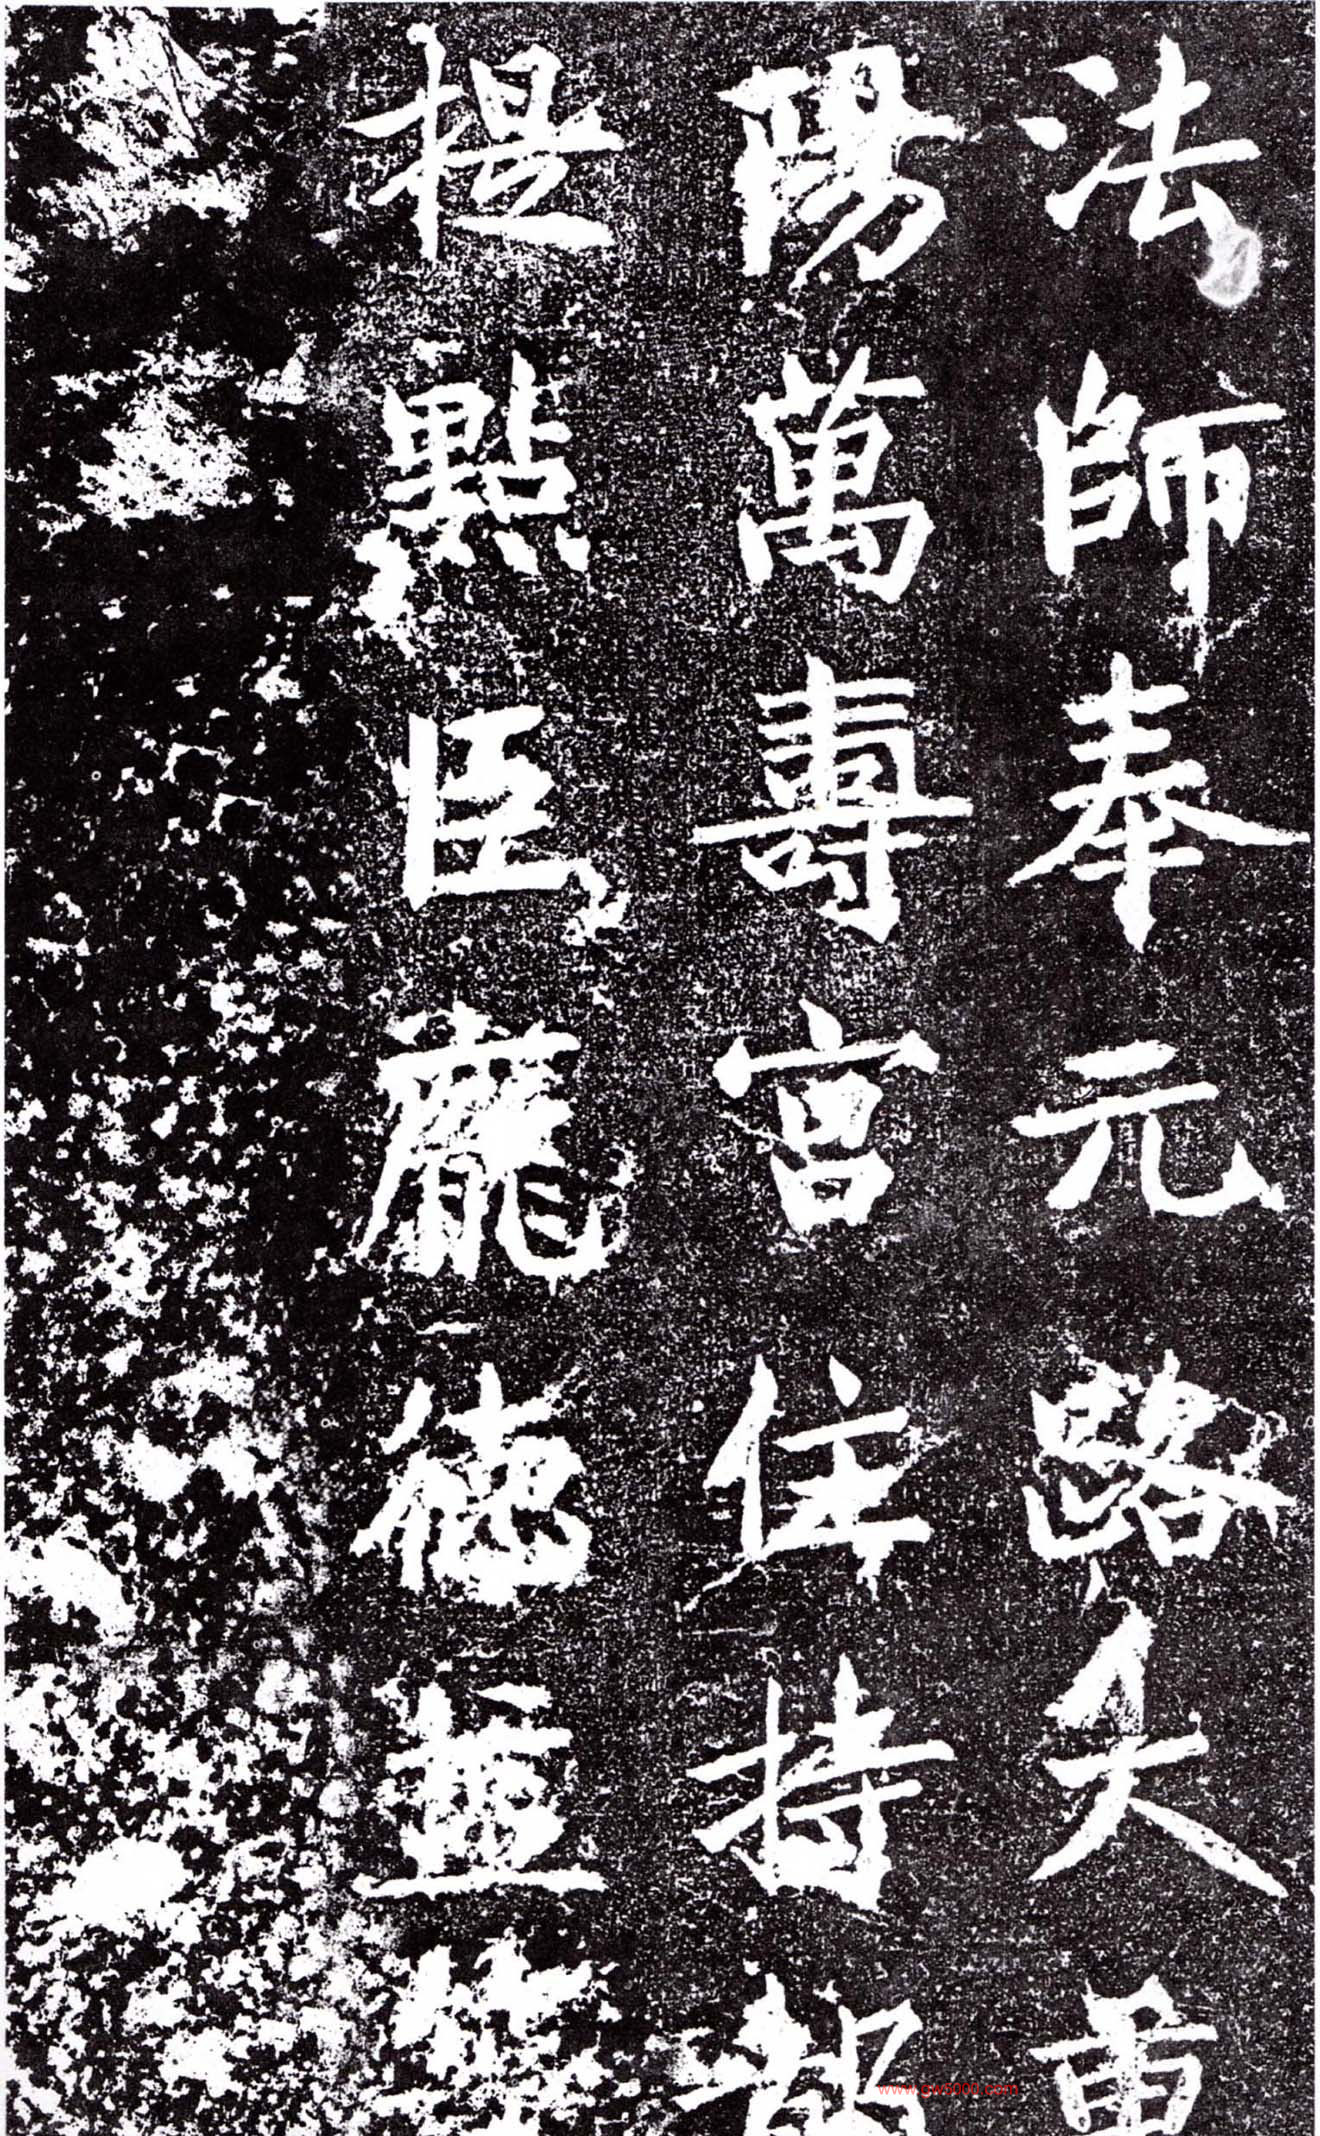 法師奉元路大重
陽萬壽宮住持都
提點臣龐德益
www.gw5000.com